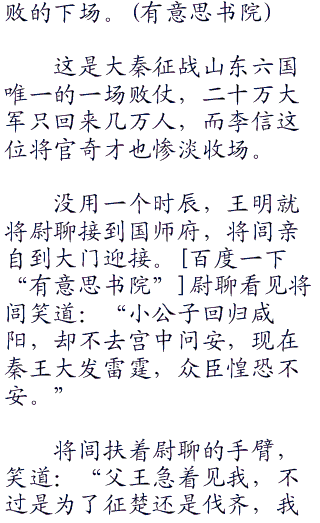 败的下场。(有意思书院)
这是大秦征战山东六国
唯一的一场败仗，二十万大
军只回来几万人，而李信这
位将官奇才也惨淡收场。
没用一个时辰，王明就
将尉聊接到国师府，将闾亲
自到大门迎接。[百度一下
“有意思书院”]尉聊看见将
闾笑道：“小公子回归咸
阳，却不去宫中问安，现在
秦王大发雷霆，众臣惶恐不
安。”
将闾扶着尉聊的手臂，
笑道：“父王急着见我，不
过是为了征楚还是伐齐，我